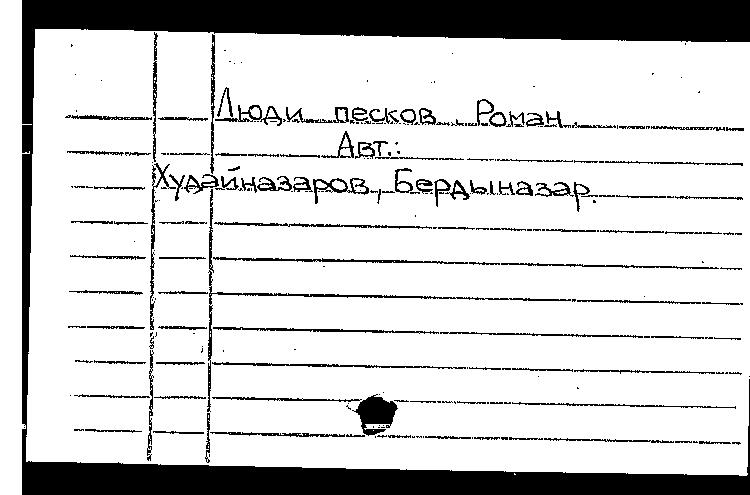 Люди песков. Роман.
Авт.:
Худайназаров, Бердыназар.